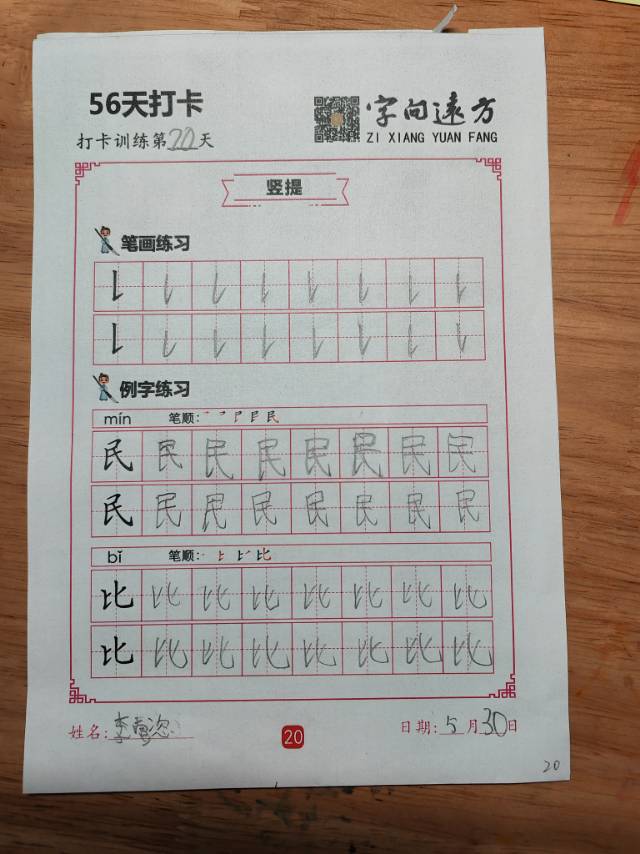 56天打卡
字向遠方
打卡训练第20天
ZI XIANG YUAN FANG
竖提
笔画练习
例字练习
mín 笔顺:
民 民 民 民 民 民 民 民
民 民 民 民 民 民 民 民
bǐ 笔顺:
比 比 比 比 比 比 比 比
比 比 比 比 比 比 比 比
姓名:李
20
日期:5月30日
20